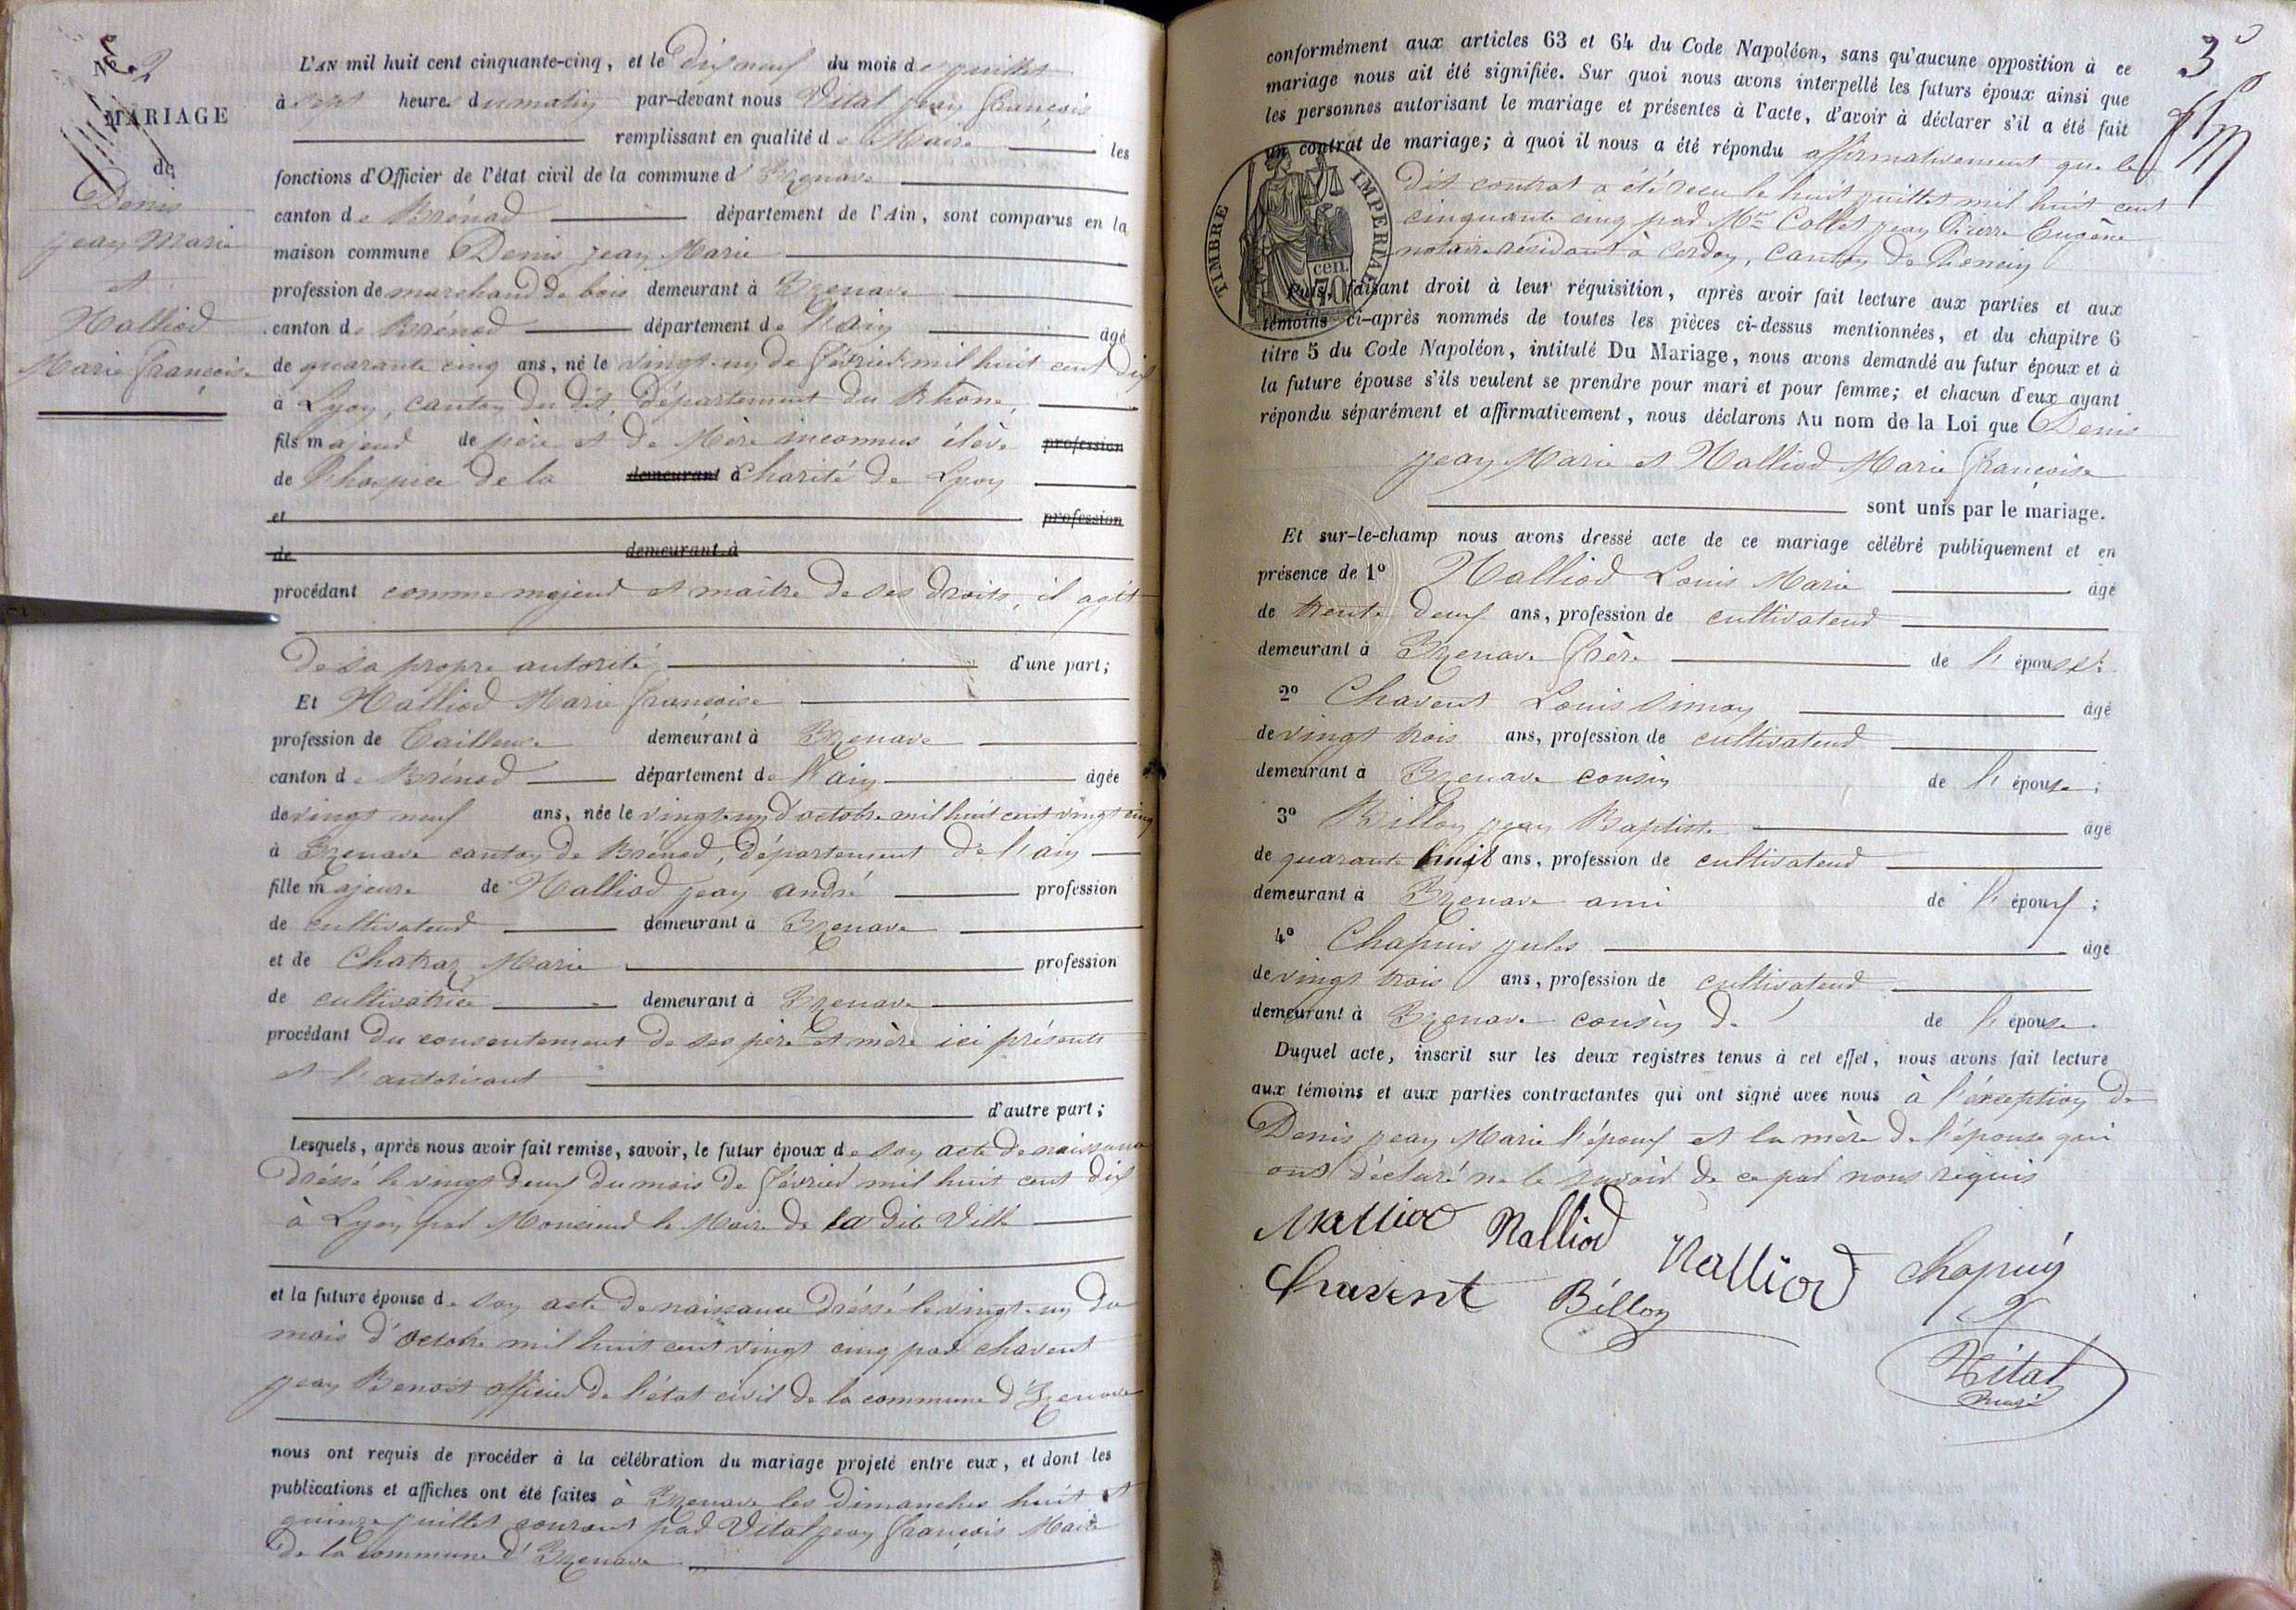 N° 2
MARIAGE
de
Denis
jean Marie
et
Nalliod
Marie françoise
L'AN mil huit cent cinquante-cinq, et le Dix neuf du mois de juillet
à sept heures du matin par-devant nous Vital jean françois
remplissant en qualité de Maire les
fonctions d'Officier de l'état civil de la commune d' Izenave
canton de Brénod département de l'Ain, sont comparus en la
maison commune Denis jean Marie
profession de marchand de bois demeurant à Izenave
canton de Brénod département de l'ain âgé
de quarante cinq ans, né le vingt-un de février mil huit cent dix
à Lyon, canton du dit, Département du Rhône,
fils majeur de père et de Mère inconnus élève profession
de l'hospice de la demeurant à Charité de Lyon
et profession
de demeurant à
procédant comme majeur et maître de ses droits, il agit
de sa propre autorité d'une part;
Et Nalliod Marie françoise
profession de Tailleuse demeurant à Izenave
canton de Brénod département de l'ain âgée
de vingt neuf ans, née le vingt-un d'octobre mil huit cent vingt cinq
à Izenave canton de Brénod, Département de l'ain
fille majeure de Nalliod jean andré profession
de cultivateur demeurant à Izenave
et de Chatraz Marie profession
de cultivatrice demeurant à Izenave
procédant du consentement de ses père et mère ici présents
et l'autorisant
d'autre part;
Lesquels, après nous avoir fait remise, savoir, le futur époux de son acte de naissance
Dréssé le vingt deux du mois de février mil huit cent dix
à Lyon par Monsieur le Maire de la dite Ville
et la future épouse de son acte de naissance Dréssé le vingt-un du
mois d'octobre mil huit cent vingt cinq par chavent
jean Benoit officier de l'état civil de la commune d'Izenave
nous ont requis de procéder à la célébration du mariage projeté entre eux, et dont les
publications et affiches ont été faites à Izenave les dimanches huit et
quinze juillet courant par Vital jean françois Maire
de la commune d'Izenave
3
conformément aux articles 63 et 64 du Code Napoléon, sans qu'aucune opposition à ce
mariage nous ait été signifiée. Sur quoi nous avons interpellé les futurs époux ainsi que
les personnes autorisant le mariage et présentes à l'acte, d'avoir à déclarer s'il a été fait
un contrat de mariage; à quoi il nous a été répondu affirmativement que le
dit contrat a été reçu le huit juillet mil huit cent
cinquante cinq par Mre Collet jean Pierre Eugène
notaire résidant à Cerdon, canton de Poncin
TIMBRE IMPERIAL
cen. 70
Puis, faisant droit à leur réquisition, après avoir fait lecture aux parties et aux
témoins ci-après nommés de toutes les pièces ci-dessus mentionnées, et du chapitre 6
titre 5 du Code Napoléon, intitulé Du Mariage, nous avons demandé au futur époux et à
la future épouse s'ils veulent se prendre pour mari et pour femme; et chacun d'eux ayant
répondu séparément et affirmativement, nous déclarons Au nom de la Loi que Denis
jean Marie et Nalliod Marie françoise
sont unis par le mariage.
Et sur-le-champ nous avons dressé acte de ce mariage célébré publiquement et en
présence de 1° Nalliod Louis Marie âgé
de trente deux ans, profession de cultivateur
demeurant à Izenave frère de l'épouse;
2° Chavent Louis Simon âgé
de vingt trois ans, profession de cultivateur
demeurant à Izenave cousin de l'épouse;
3° Billon jean Baptiste âgé
de quarante huit ans, profession de cultivateur
demeurant à Izenave ami de l'époux;
4° Chapuis jules âgé
de vingt trois ans, profession de cultivateur
demeurant à Izenave cousin de de l'épouse.
Duquel acte, inscrit sur les deux registres tenus à cet effet, nous avons fait lecture
aux témoins et aux parties contractantes qui ont signé avec nous à l'éxception de
Denis jean Marie l'époux et la mère de l'épouse qui
ont déclaré ne le savoir de ce par nous requis
Nalliod Nalliod Nalliod Chapuis
Chavent Billon
Vital
Maire